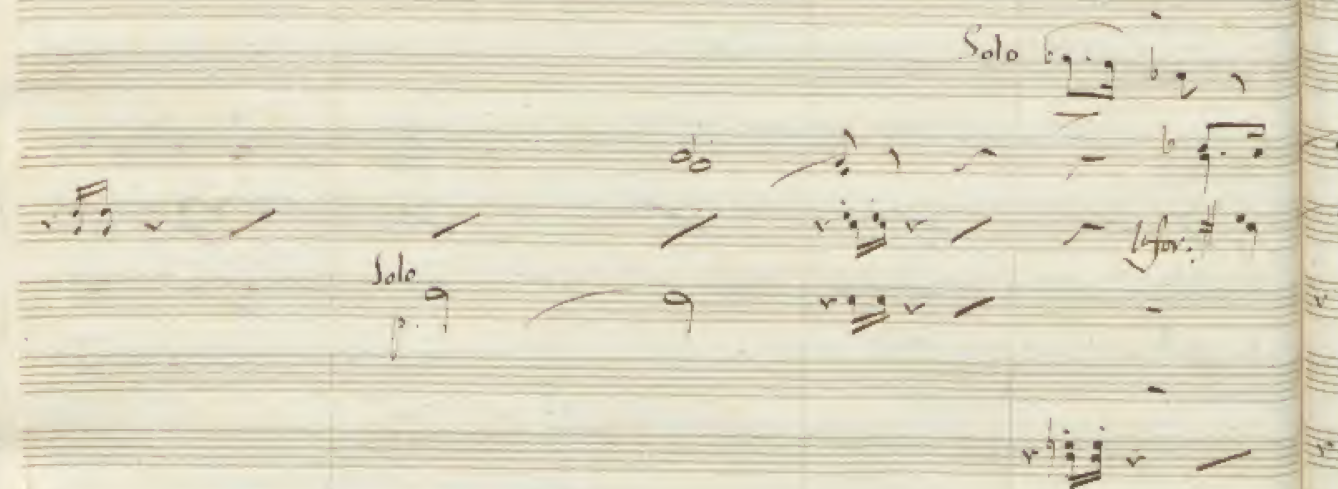 Solo
Solo
p.